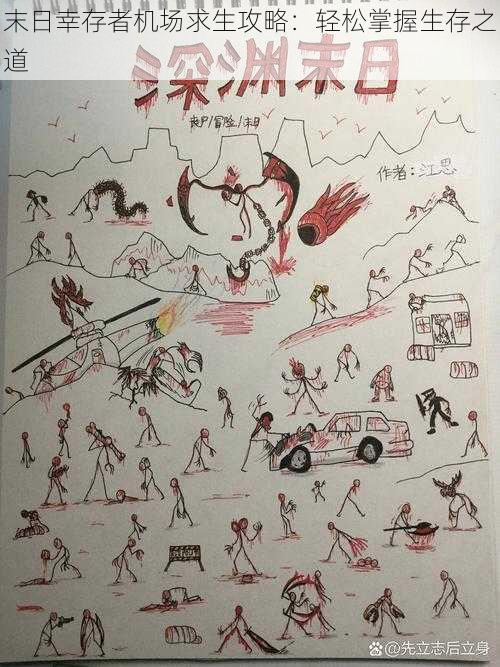 末日幸存者机场求生攻略：轻松掌握生存之
道
深渊末日
丧尸/冒险/末日
作者：江思
@先立志后立身